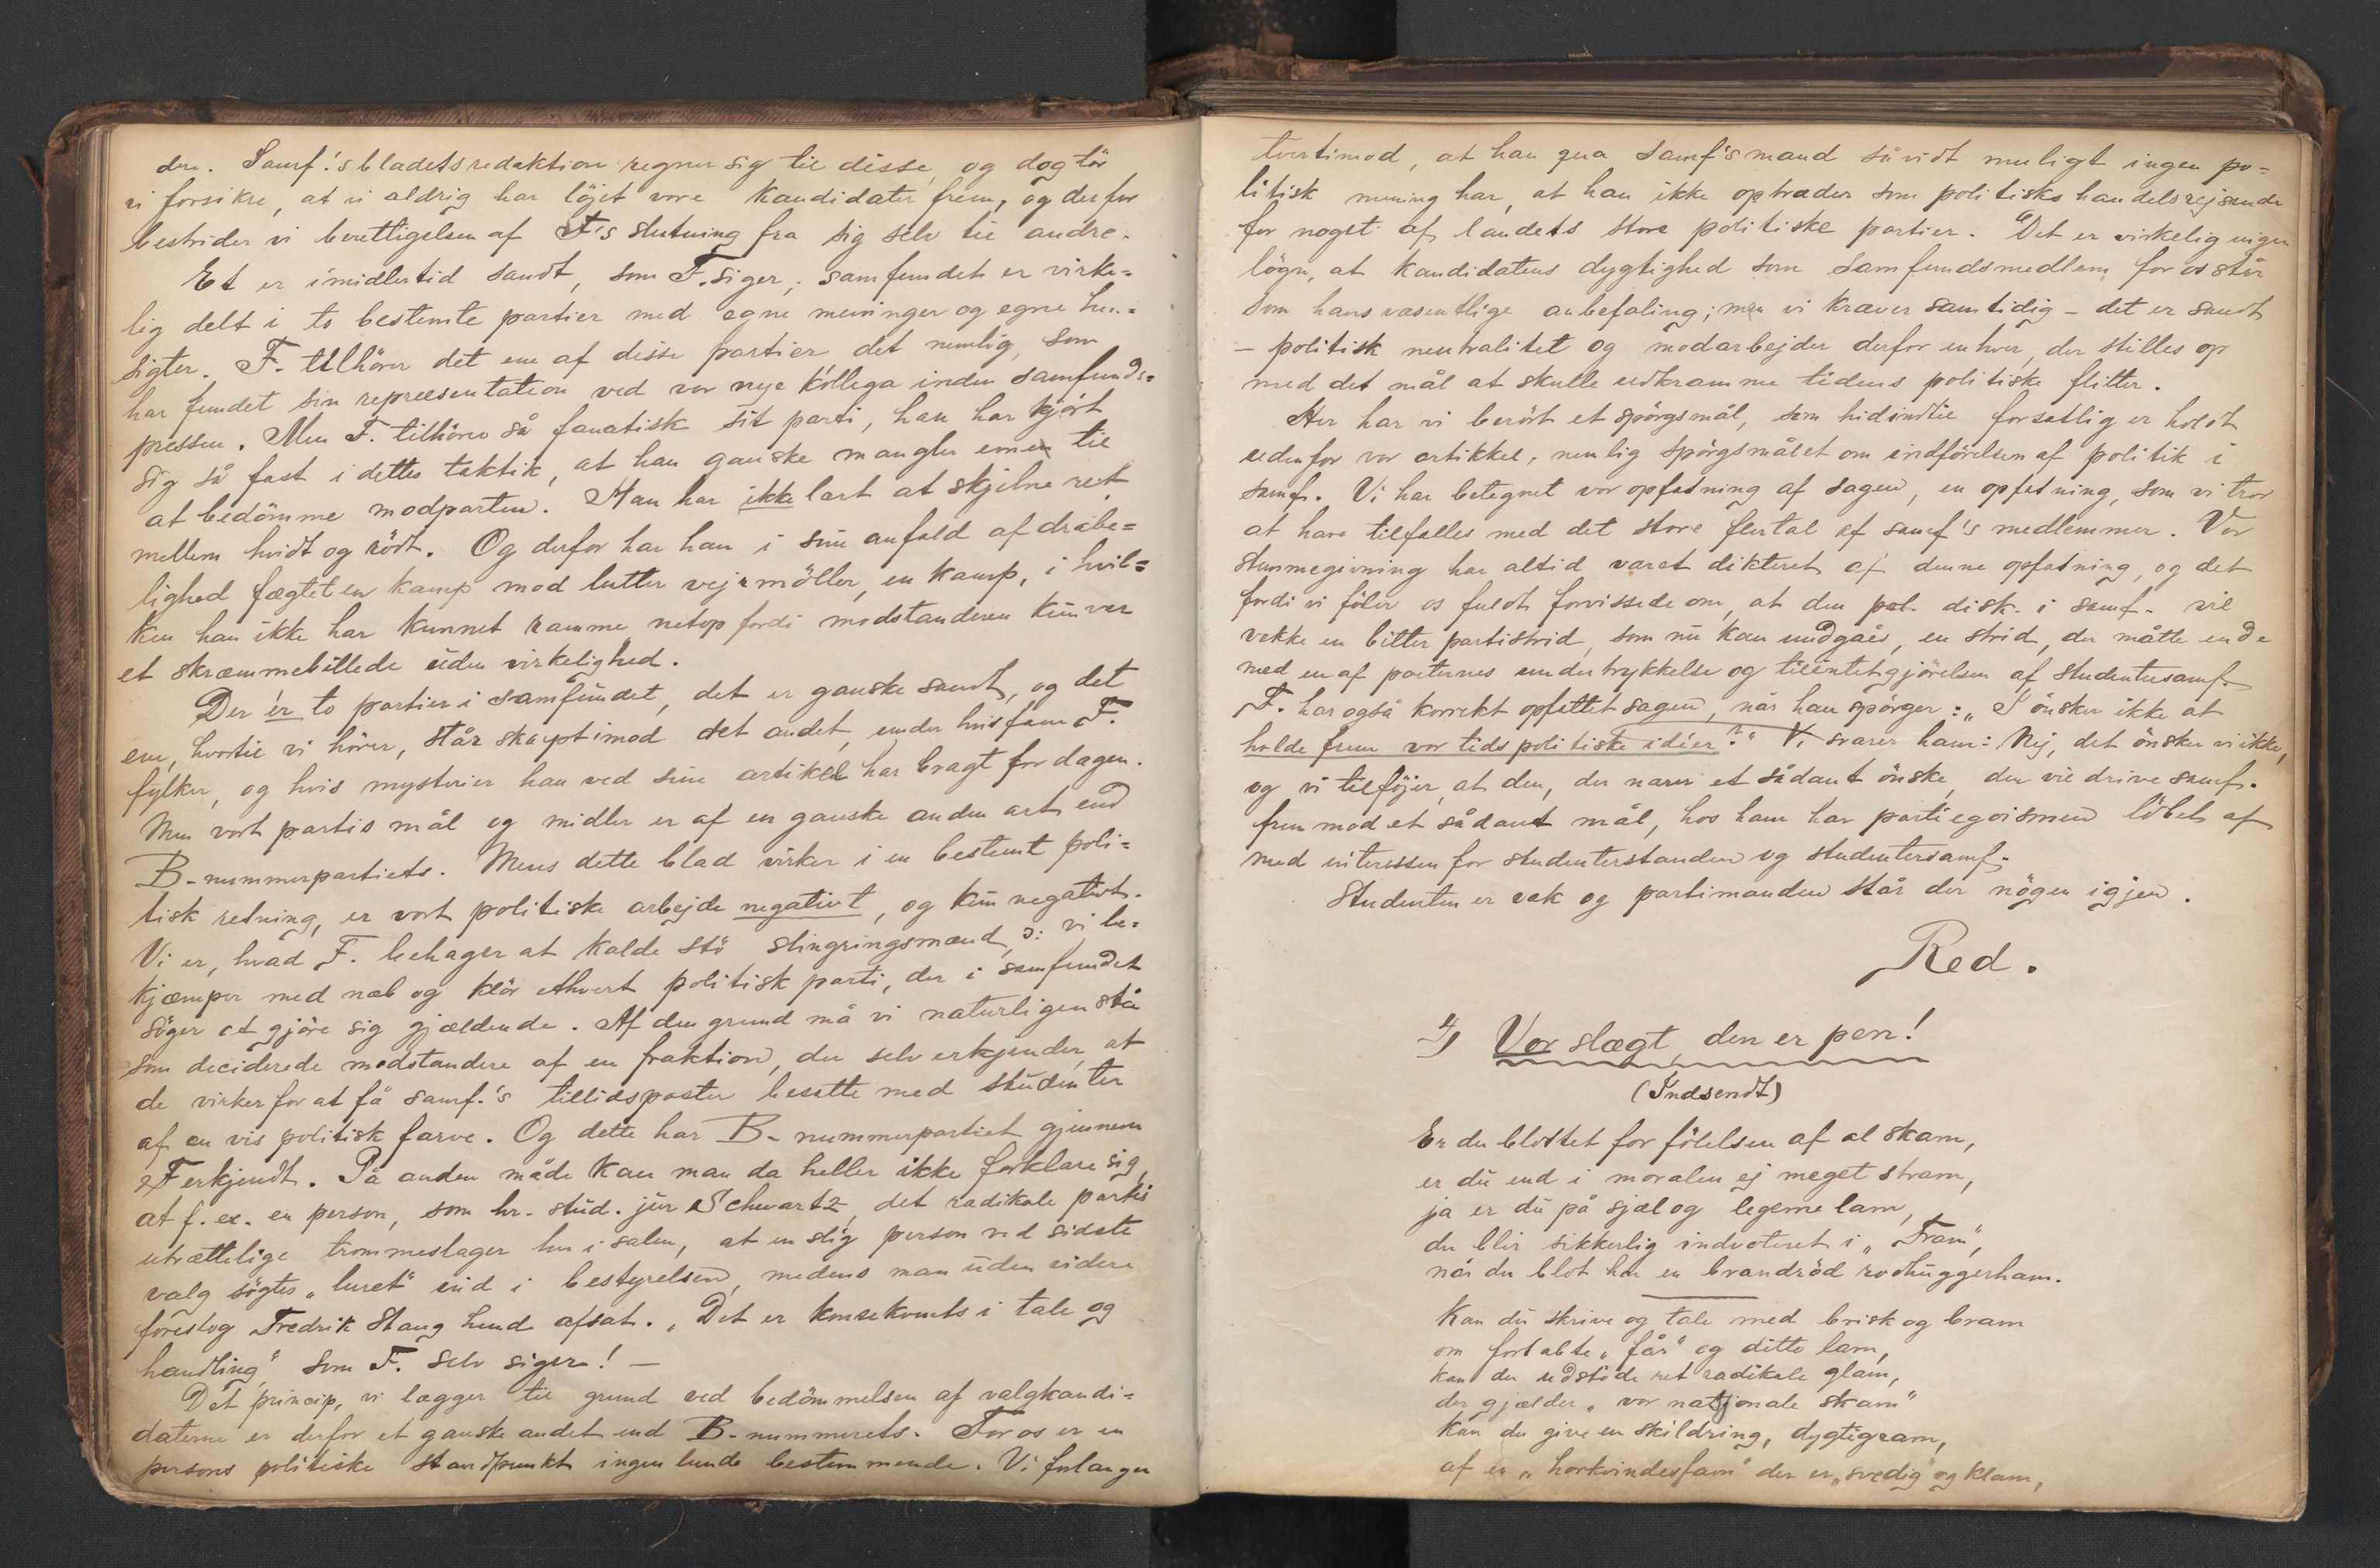 dre. Samf.'s bladets redaktion regner sig til disse, og dog tör
vi forsikre, at vi aldrig har löjet vore kandidater frem, og derfor
bestrider vi berettigelsen af F's slutning fra sig selv til andre.
Et er imidlertid sandt, som F. siger; samfundet er virke=
lig delt i to bestemte partier med egne meninger og egne hen=
sigter. F. tilhörer det ene af disse partier det nemlig, som
har fundet sin repræsentation ved vor nye kollega inden samfunds=
pressen. Men F. tilhörer så fanatisk sit parti, han har kjört
sig så fast i dettes taktik, at han ganske mangler evnen til
at bedömme modparten. Han har ikke lært at skjelne ret
mellem hvidt og rödt. Og derfor har han i sine anfald af dråbe=
lighed fægtet en kamp mod lutter vejrmöller, en kamp, i hvil=
ken han ikke har kunnet ramme netop fordi modstanderen kun var
et skræmmebillede uden virkelighed.
Der er to partier i samfundet, det er ganske sandt, og det
ene, hvortil vi hörer, står skarpt imod det andet, under hvis fane F.
fylker, og hvis mysterier han ved sine artikel har bragt for dagen.
Men vort partis mål og midler er af en ganske anden art end
B-nummerpartiets. Mens dette blad virker i en bestemt poli=
tisk retning, er vort politiske arbejde negativt, og kun negativt.
Vi er, hvad F. behager at kalde stö slingringsmænd, ɔ: vi be=
kjæmper med næb og klör ethvert politisk parti, der i samfundet
söger at gjöre sig gjældende. Af den grund må vi naturligen stå
som deciderede modstandere af en fraktion, der selv erkjender, at
de virker for at få samf.'s tillidsposter besatte med studenter
af en vis politisk farve. Og dette har B-nummerpartiet gjennem
F erkjendt. På anden måde kan man da heller ikke forklare sig,
at f. ex. en person, som hr. stud. jur Schwartz, det radikale partis
utrættelige trommeslager her i salen, at en slig person ved sidste
valg sögtes „luret“ ind i bestyrelsen, medens man uden videre
foreslog Fredrik Stang Lund afsat. „Det er konsekvents i tale og
handling“ som F. selv siger! —
Det princip, vi lægger til grund ved bedömmelsen af valgkandi=
daterne er derfor et ganske andet end B-nummerets. For os er en
persons politiske standpunkt ingenlunde bestemmende. Vi forlanger
tvertimod, at han qua samf's mand såvidt muligt ingen po=
litisk mening har, at han ikke optræder som politisk handelsrejsende
for noget af landets store politiske partier. Det er virkelig ingen
lögn, at kandidatens dygtighed som samfundsmedlem for os står
som hans væsentlige anbefaling; men vi kræver samtidig – det er sandt
– politisk neutralitet og modarbejder derfor enhver, der stilles op
med det mål at skulle udkramme tidens politiske flitter.
Her har vi berört et spörgsmål, som hidindtil forsætlig er holdt
udenfor vor artikkel, nemlig spörgsmålet om indförelsen af politik i
samf. Vi har betegnet vor opfatning af sagen, en opfatning, som vi tror
at have tilfælles med det store flertal af samf's medlemmer. Vor
stemmegivning har altid været dikteret af denne opfatning, og det
fordi vi föler os fuldt forvissede om, at den pol. disk. i samf. vil
vække en bitter partistrid, som nu kan undgåes, en strid, der måtte ende
med en af parternes undertrykkelse og tilintetgjörelsen af studentersamf.
F. har også korrekt opfattet sagen, når han spörger: „I önsker ikke at
holde frem vor tids politiske idéer?“ Vi svarer ham: Nej, det önsker vi ikke,
og vi tilföjer, at den, der nærer et sådant önske, der vil drive samf.
frem mod et sådant mål, hos ham har partiegoismen löbet af
med interessen for studenterstanden og studentersamf.
Studenten er væk og partimanden står der nögen igjen.
Red.
4) Vor slægt, den er pæn!
(Indsendt)
Er du blottet for fölelsen af al skam,
er du end i moralen ej meget stram,
ja er du på sjæl og legeme lam,
du blir sikkerlig indvoteret i „Fram“,
når du blot har en brandröd rödhuggerham.
Kan du skrive og tale med brisk og bram
om fortabte „får“ og ditto lam,
kan du udstöde ret radikale glam,
der gjælder „vor nationale skam“
kan du give en skildring, dygtig gram,
af en „horkvindesfam“ der er „svedig“ og klam,